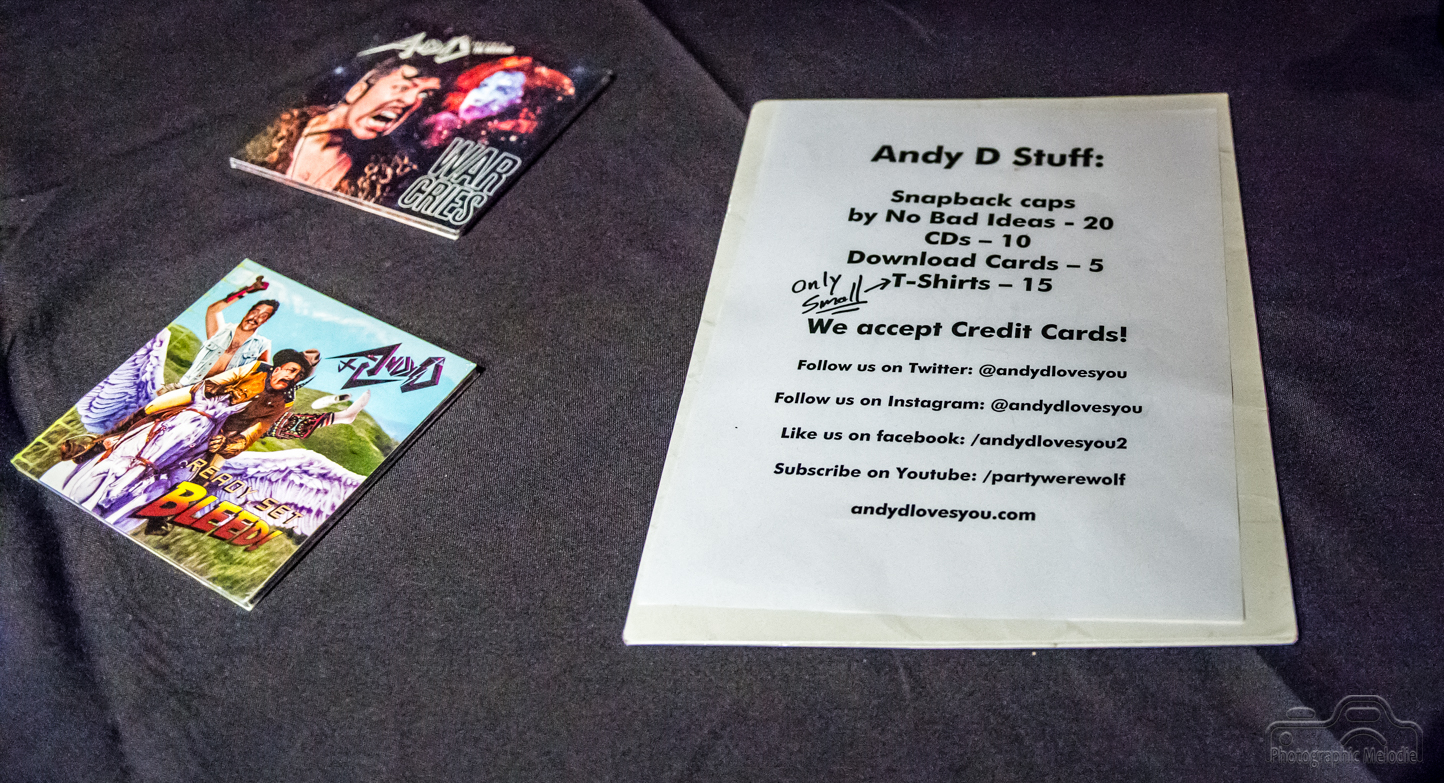 Andy D
WAR
CRIES
Andy D
READY SET
BLEED!
Andy D Stuff:
Snapback caps
by No Bad Ideas - 20
CDs – 10
Download Cards – 5
Only
Small
T-Shirts – 15
We accept Credit Cards!
Follow us on Twitter: @andydlovesyou
Follow us on Instagram: @andydlovesyou
Like us on facebook: /andydlovesyou2
Subscribe on Youtube: /partywerewolf
andydlovesyou.com
Photographic Melodie